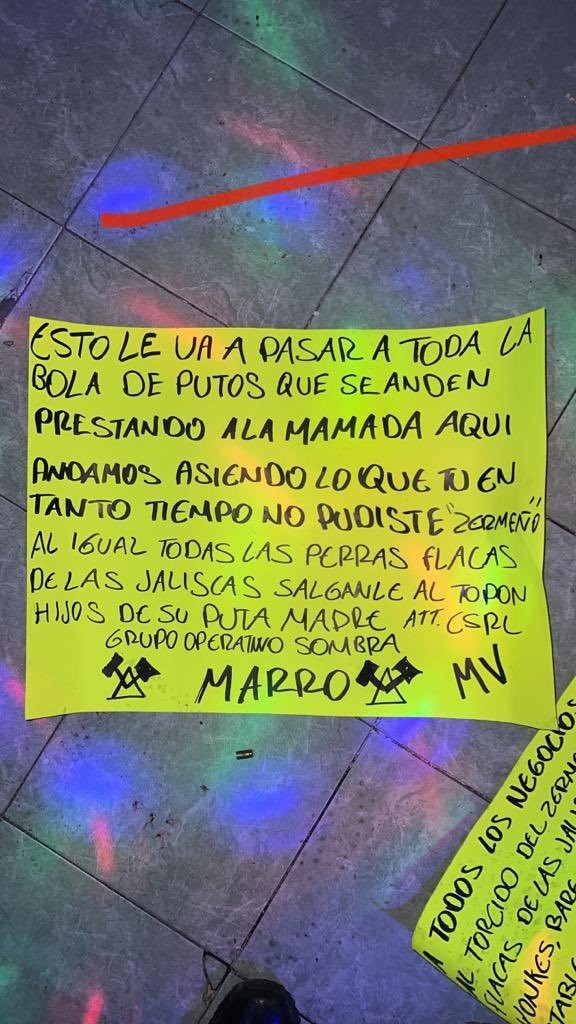 ESTO LE VA A PASAR A TODA LA
BOLA DE PUTOS QUE SE ANDEN
PRESTANDO A LA MAMADA AQUI
ANDAMOS ASIENDO LO QUE TU EN
TANTO TIEMPO NO PUDISTE "ZERMEÑO"
AL IGUAL TODAS LAS PERRAS FLACAS
DE LAS JALISCAS SALGANLE AL TOPON
HIJOS DE SU PUTA MADRE ATT. CSRL
GRUPO OPERATIVO SOMBRA
MARRO MV
A TODOS LOS NEGOCIOS
AL TORCIDO DEL
FLACAS DE LAS